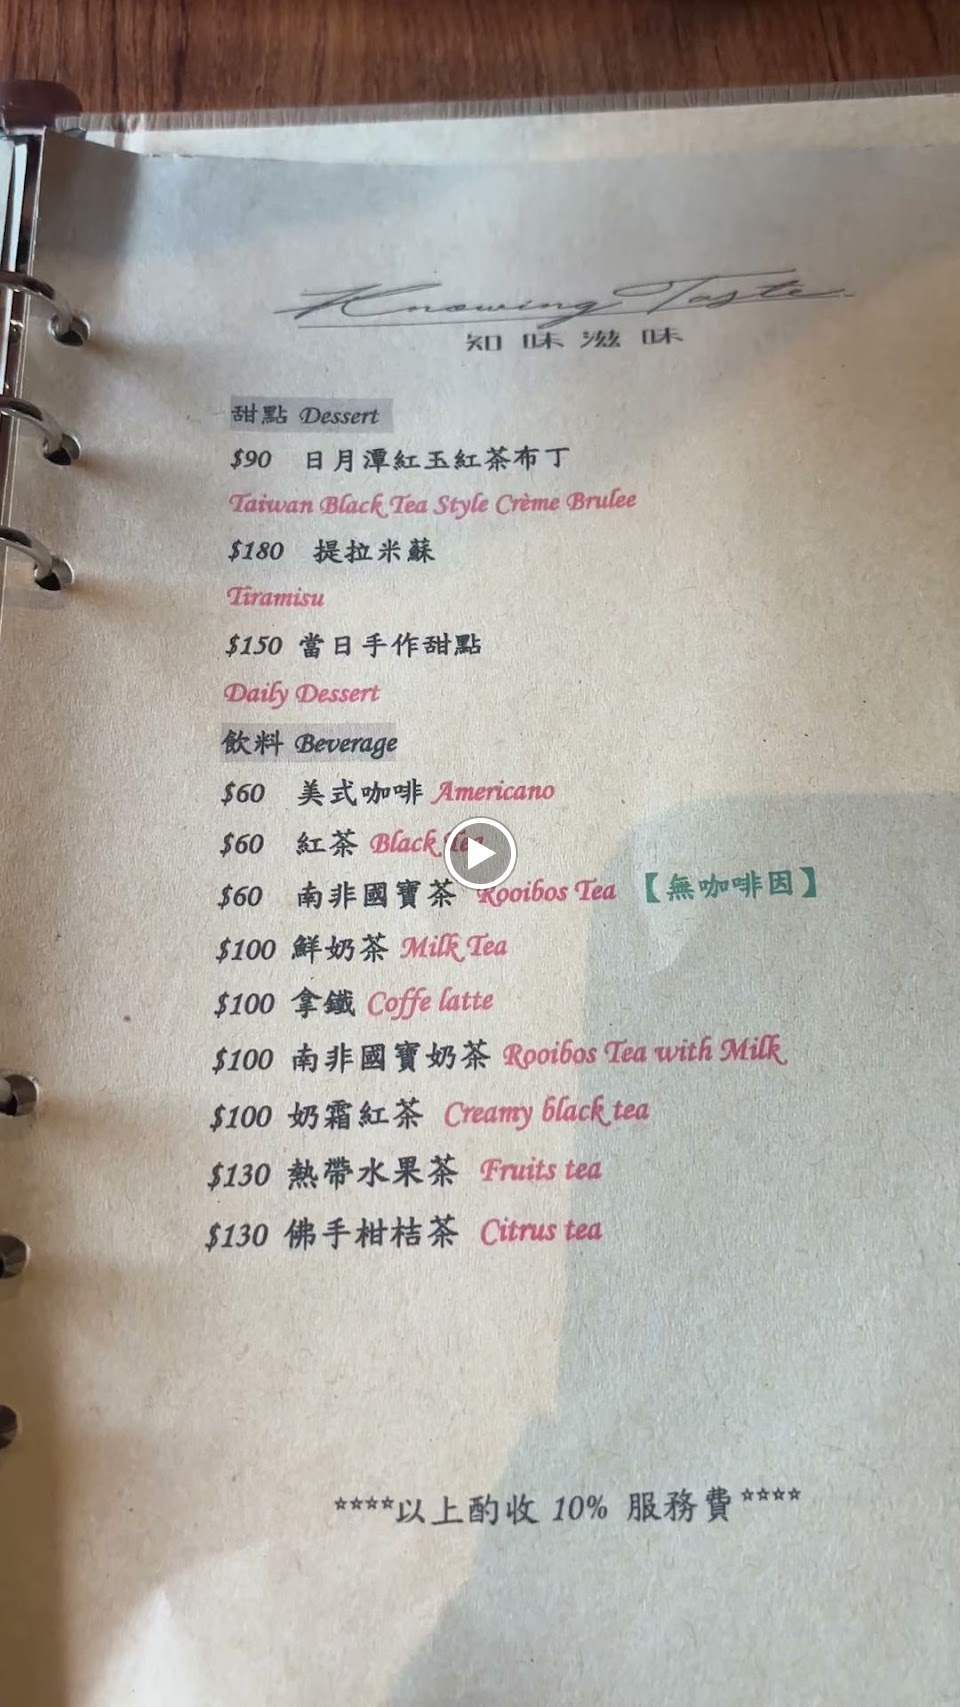 Knowing Taste
知味滋味
甜點 Dessert
$90 日月潭紅玉紅茶布丁
Taiwan Black Tea Style Crème Brulee
$180 提拉米蘇
Tiramisu
$150 當日手作甜點
Daily Dessert
飲料 Beverage
$60 美式咖啡 Americano
$60 紅茶 Black Tea
$60 南非國寶茶 Rooibos Tea 【無咖啡因】
$100 鮮奶茶 Milk Tea
$100 拿鐵 Coffe latte
$100 南非國寶奶茶 Rooibos Tea with Milk
$100 奶霜紅茶 Creamy black tea
$130 熱帶水果茶 Fruits tea
$130 佛手柑桔茶 Citrus tea
****以上酌收 10% 服務費****